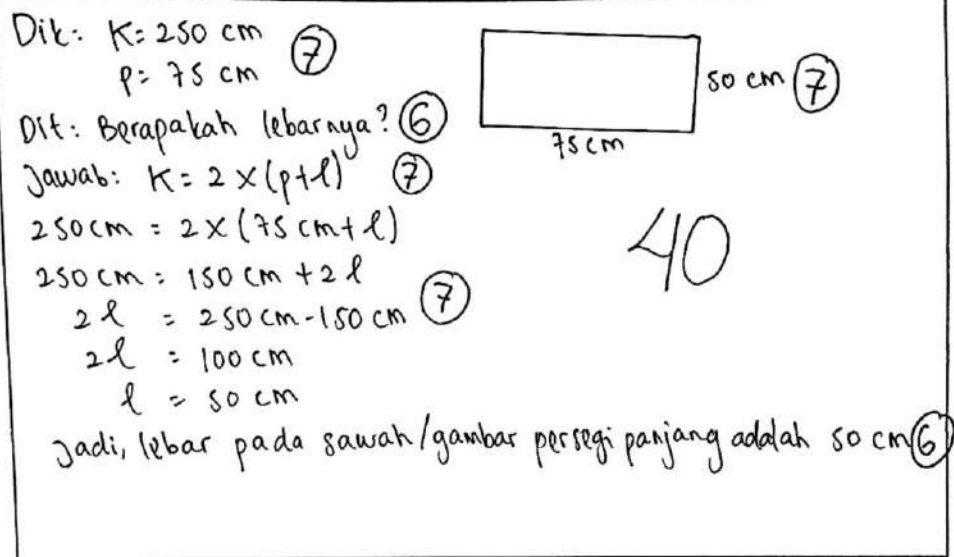 Dik: K= 250 cm
p= 75 cm ⑦
50 cm ⑦
75 cm
Dit: Berapakah lebarnya? ⑥
Jawab: K= 2 × (p+l) ⑦
250 cm = 2 × (75 cm + l)
250 cm = 150 cm + 2 l
2 l = 250 cm - 150 cm ⑦
2 l = 100 cm
l = 50 cm
40
Jadi, lebar pada sawah/gambar persegi panjang adalah 50 cm ⑥